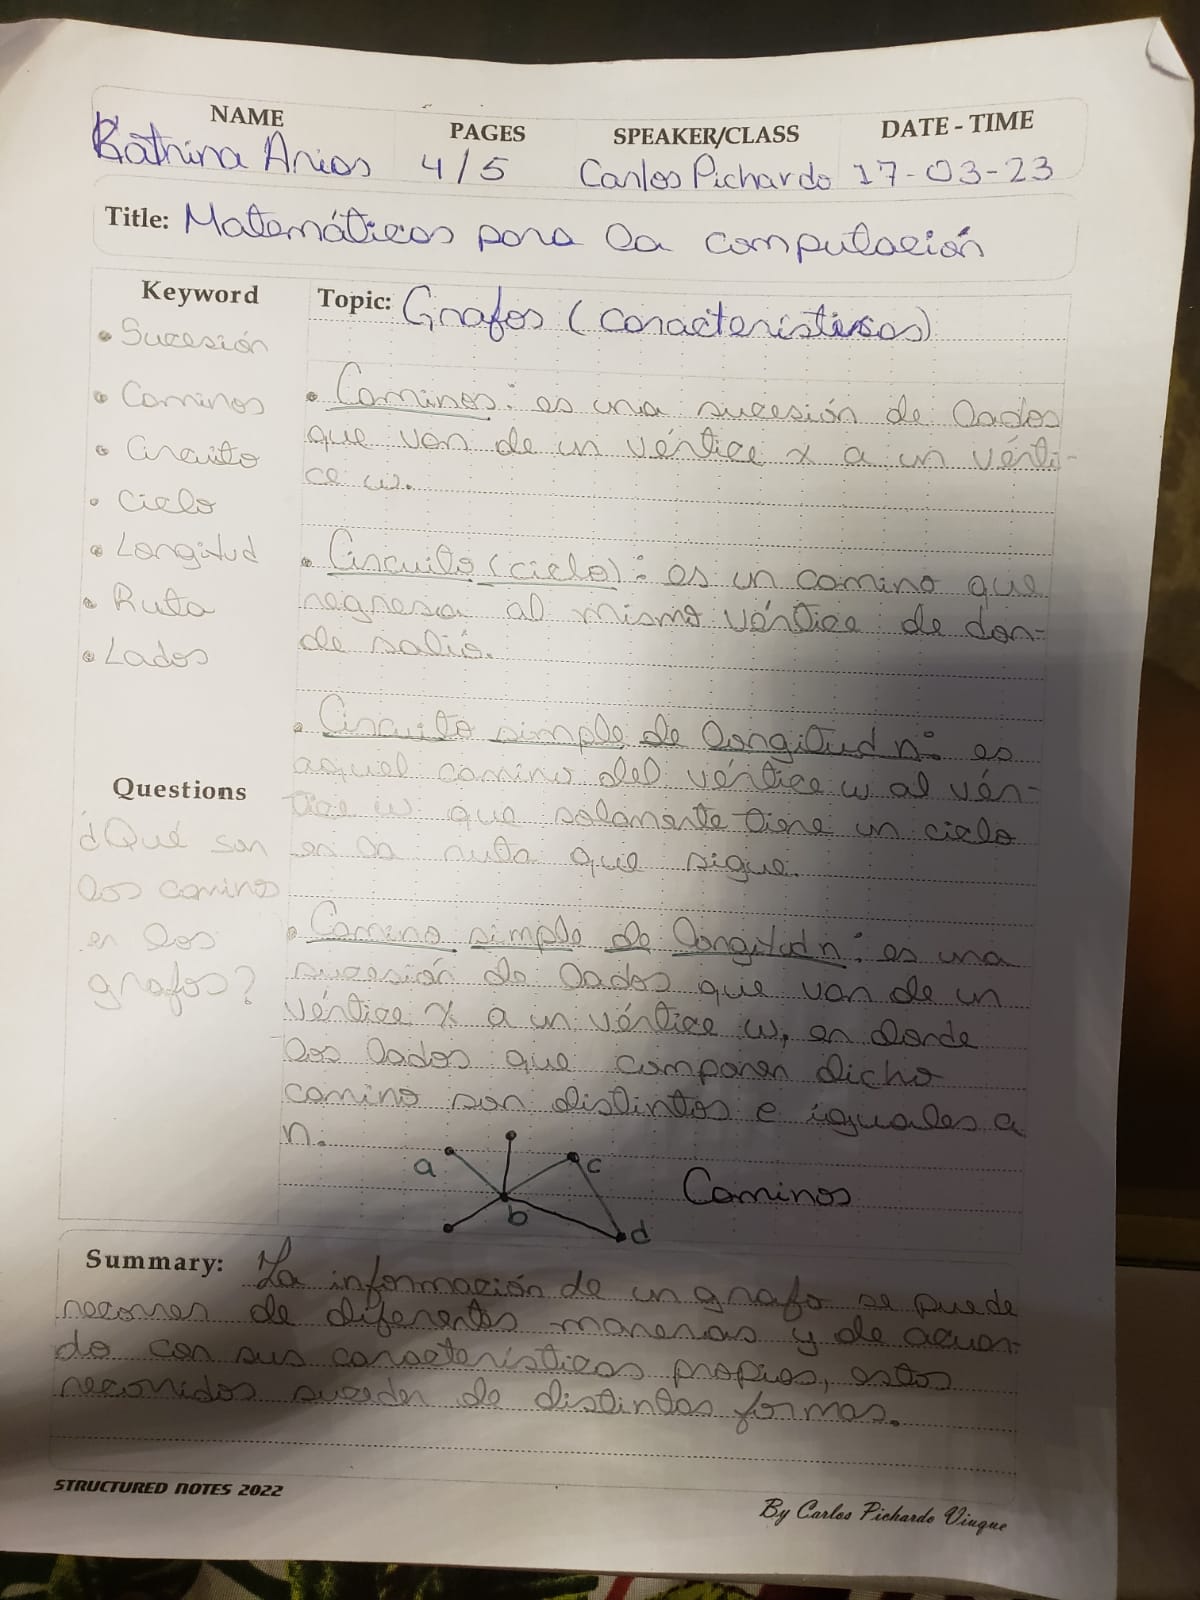 NAME PAGES SPEAKER/CLASS DATE - TIME
Katrina Arias 4/5 Carlos Pichardo 17-03-23
Title: Matemáticas para la computación
Keyword
• Sucesión
• Caminos
• Circuito
• Ciclo
• Longitud
• Ruta
• Lados
Questions
¿Qué son
los caminos
en los
grafos?
Topic: Grafos (características)
• Caminos: es una sucesión de lados
que van de un vértice x a un vérti-
ce w.
• Circuito (ciclo): es un camino que
regresa al mismo vértice de don-
de salió.
• Circuito simple de longitud n: es
aquel camino del vértice w al vér-
tice w que solamente tiene un ciclo
en la ruta que sigue.
• Camino simple de longitud n: es una
sucesión de lados que van de un
vértice x a un vértice w, en donde
los lados que componen dicho
camino son distintos e iguales a
n.
a
b
c
d
Caminos
Summary: La información de un grafo se puede
recorrer de diferentes maneras y de acuer-
do con sus características propias, estos
recorridos suceden de distintas formas.
STRUCTURED NOTES 2022
By Carlos Pichardo Viuque